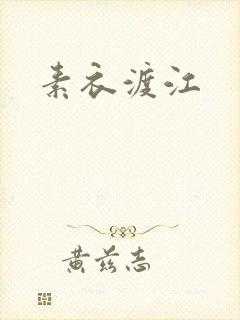 素衣渡江
黄兹志